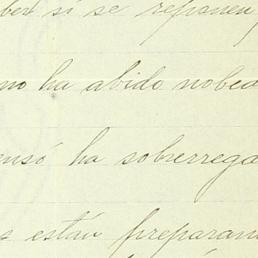 ber si se reponen
no ha abido nobed
ensó ha sobrerrega
e están preparan